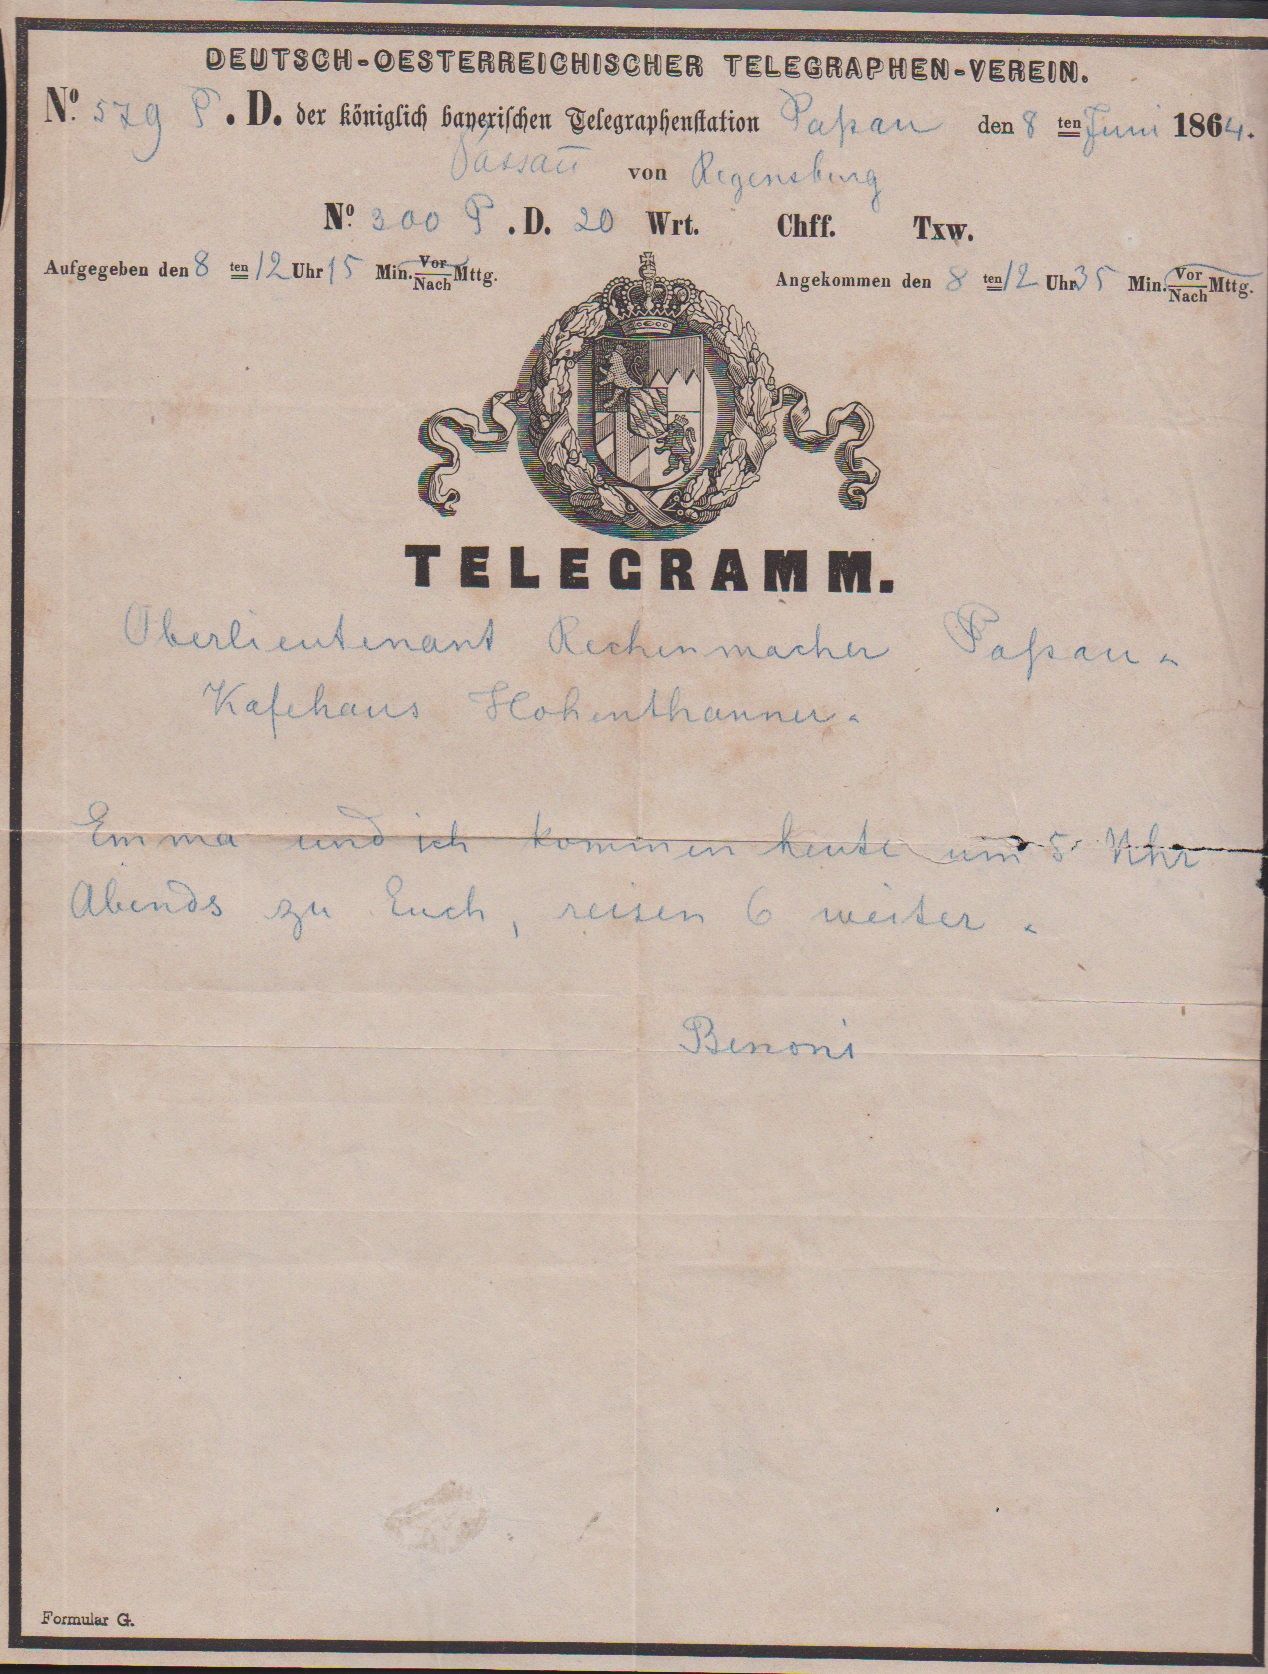 DEUTSCH-OESTERREICHISCHER TELEGRAPHEN-VEREIN.
No. 579 P. D. der königlich bayerischen Telegraphenstation Paßau den 8 ten Juni 1864.
Passau von Regensburg
No. 300 P. D. 20 Wrt. Chff. Txw.
Aufgegeben den 8 ten 12 Uhr 15 Min. Vor/Nach Mttg. Angekommen den 8 ten 12 Uhr 35 Min. Vor/Nach Mttg.
TELEGRAMM.
Oberlieutenant Rechenmacher Paßau.
Kafehaus Hohenthanner.
Emma und ich kommen heute um 5 Uhr
Abends zu Euch, reisen 6 weiter.
Benoni
Formular G.